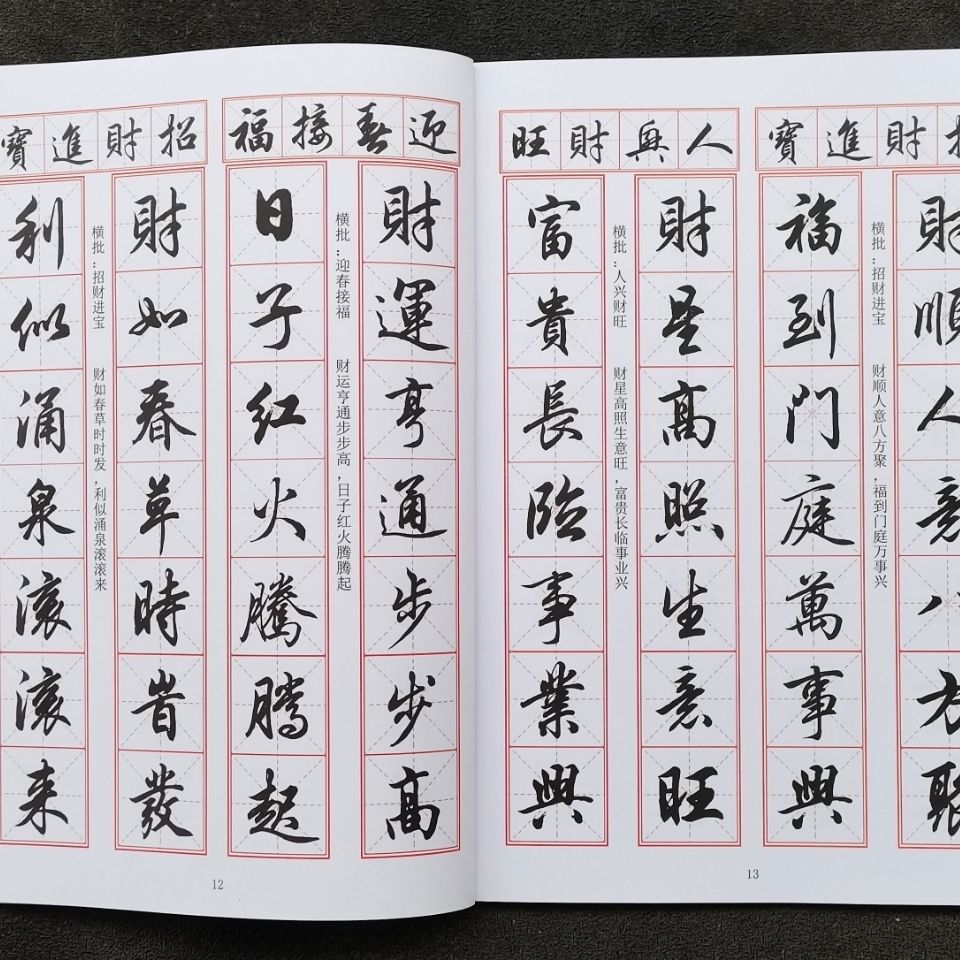 迎春接福
財運亨通步步高
横批：迎春接福　财运亨通步步高，日子红火腾腾起
日子紅火騰騰起
招財進寶
財如春草時旹發
横批：招财进宝　财如春草时时发，利似涌泉滚滚来
利似涌泉滚滚来
12
招財進寶
財順人意八方聚
横批：招财进宝　财顺人意八方聚，福到门庭万事兴
福到門庭萬事興
人興財旺
財星高照生意旺
横批：人兴财旺　财星高照生意旺，富贵长临事业兴
富貴長臨事業興
13